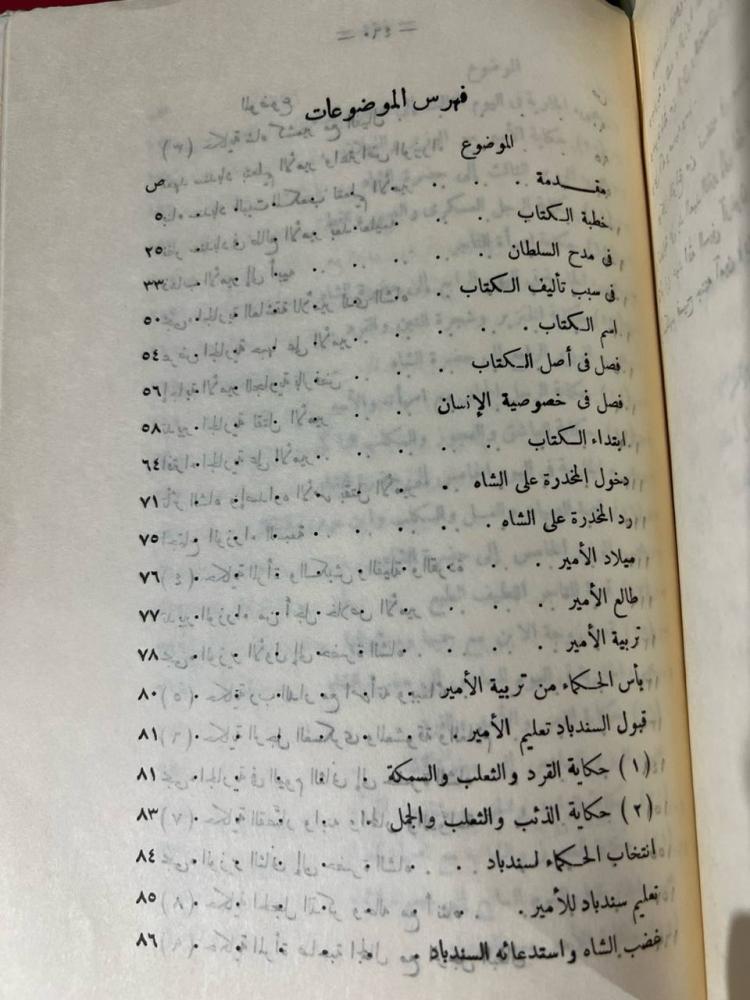 فهرس الموضوعات
الموضوع ص
مقدمة . . . . ٥
خطبة الكتاب . . . . ٢٥
فى مدح السلطان . . . . ٣٣
فى سبب تأليف الكتاب . . . . ٥٠
اسم الكتاب . . . . ٥٤
فصل فى أصل الكتاب . . . . ٥٦
فصل فى خصوصية الإنسان . . . . ٥٨
ابتداء الكتاب . . . . ٦٤
دخول المخدرة على الشاه . . . . ٧١
رد المخدرة على الشاه . . . . ٧٥
ميلاد الأمير . . . . ٧٦
طالع الأمير . . . . ٧٧
تربية الأمير . . . . ٧٨
يأس الحكماء من تربية الأمير . . . . ٨٠
قبول السندباد تعليم الأمير . . . . ٨١
(١) حكاية القرد والثعلب والسمكة . . . . ٨١
(٢) حكاية الذئب والثعلب والجمل . . . . ٨٣
انتخاب الحكماء لسندباد . . . . ٨٤
تعليم سندباد للأمير . . . . ٨٥
غضب الشاه واستدعائه السندباد . . . . ٨٦